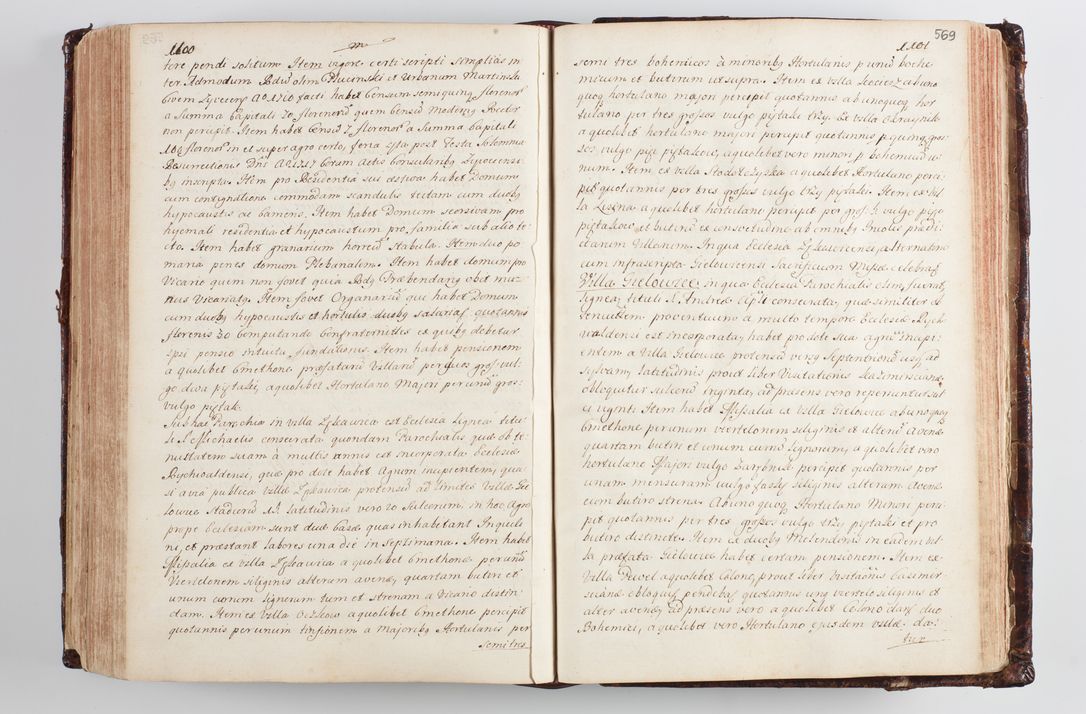 1100
tere pendi solitum. Item vigore certi scripti simplicis in
ter Admodum Rdum olim Plucinski et Urbanum
Civem Zyvecens A 1710 facti habet Censum
a Summa Capitali 70 florenorum quem Censum modernus Rector
non percipit. Item habet Censum 7 florenorum a Summa Capitali
100 florenorum in et super agro certo, feria 5ta post Festa Solemnia
Resurrectionis Dni A 1717 Coram Actis Consularibus Zyvecensi
bus inscripta. Item pro Residentia sui ex
cum contignatione commodam scandulis tectam cum duobus
hypocaustis ac cameris. Item habet Domum seorsivam pro
hyemali residentia et hypocaustum pro familia sub alio te
cto. Item habet granarium horreum Stabula. Item duo po
maria penes domum Plebanalem. Item habet domum pro
Vicario quem non fovet quia Rdus Præbendarius obit mu
nus Vicariatus. Item fovet Organarium qui habet Domum
cum duobus hypocaustis et hortulis duobus salariatus quotannis
florenis 30 Computando Confraternitates ex quibus debetur
ipsi pensio intuitu fundationis. Item habet pensionem
a quolibet Cmethone præfatarum Villarum per duos gros. vul
go dwa piętaki, a quolibet Hortulano Majori per unum gros
vulgo piętak.
Sub hac Parochia in villa Lękawica est Ecclesia lignea titu
li S. Michaelis consecrata quondam Parochialis quæ ob te
nuitatem suam à multis annis est incorporata Ecclesiæ
Rychvaldensi, quæ pro dote habet Agrum incipientem, qua
si a via publica villæ Lękawica protensum ad limites Villæ Gie
lowice Stadiorum 15. latitudinis vero 20 Sulcorum, in hoc Agro
prope Ecclesiam sunt duæ Casæ quas inhabitant Inquili
ni, et præstant labores una die in Septimana. Item habet
Missalia ex villa Lękawica a quolibet Cmethone per unum
Viertelonem siliginis alterum avenæ, quartam butiri et
unum carrum lignorum tum et strenam a Vicario distin
ctam. Item ex villa Oczkow a quolibet Cmethone percipit
quotannis per unum tinfionem a majoribus Hortulanis per
semitres
569
1101
semi tres bohemicos à minoribus Hortulanis per unum bohe
micum et butirum ut supra. Item ex villa
quoque hortulano majori percipit quotannis ab unoquoque hor
tulano per tres grossos vulgo piętaki trzy. Ex villa Okrajnik
a quolibet hortulano majori percipit quotannis per quinque gros
sos, vulgo pięć piętakow, a quolibet vero minori per bohemicum u
num. Item ex villa Modeleżyska a quolibet Hortulano perci
pit quotannis per tres grossos vulgo trzy piętaki. Item ex vil
la a quolibet hortulano percipit per gros. 5 vulgo pięć
piętakow et butirum ex consvetudine ab omnibus Incolis prædi
ctarum Villarum. In qua Ecclesia Lękavicensi, alternatim
cum infrascripta Gielovicensi Sacrificium Missæ celebrat.
Villa Gielowice. in qua Ecclesia Parochialis olim, fuerat,
lignea, tituli S. Andreæ Apli consecrata, quæ similiter ob
tenuitatem proventuum à multo tempore Ecclesiæ Rych
waldensi est incorporata, habet pro dote sua agrum incipi
entem ex villa Gielowice protensum versus Septentrionem usque ad
sylvam, latitudinis prout Liber Visitationis Kazimirscianæ
obloquitur sulcorum triginta, ad præsens vero reperiuntur
ei viginti. Item habet Missalia ex villa Gielowice ab unoquoque
Cmethone per unum viertelonem siliginis et alterum avenæ
quartam butiri et unum currum Lignorum, a quolibet vero
hortulano Majori vulgo Zarębnik percipit quotannis per
unam mensuram vulgo fasky siliginis alteram avenæ
cum butiro strena. Ab uno quoque Hortulano Minori perci
pit quotannis per tres grosses vulgo trzy piętaki et pro
butiro distincte. Item ex duobus Molendinis in eadem vil
la præfata Gielowice habet certam pensionem. Item ex
villa Pewel a quolibet Colono, prout liber visitationis Casimir
scianæ obloquitur pendebat quotannis unum viertelo siliginis et
alter avenæ, ad præsens vero a quolibet Colono datur duo
Bohemici, a quolibet vero Hortulano ejusdem villæ da:
tur